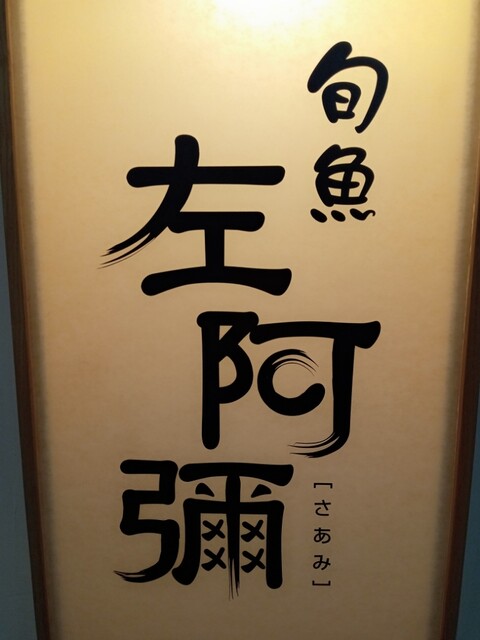 旬魚
左阿彌
[さあみ]